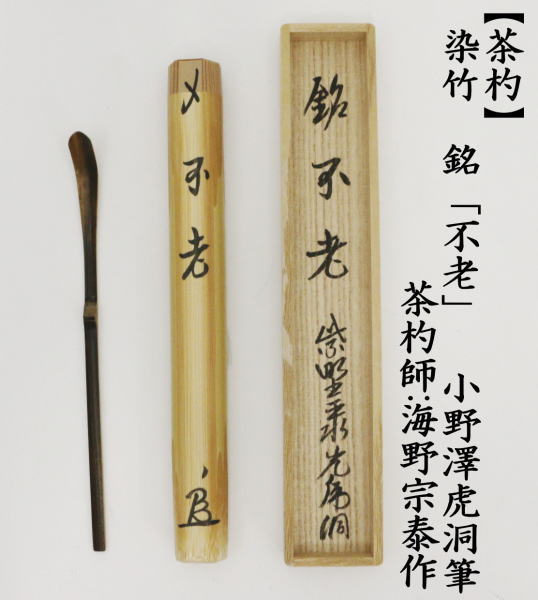 【茶杓】
染竹 銘 「不老」 小野澤虎洞筆
茶杓師:海野宗泰作
銘 不老 紫野 虎洞
〆 不老